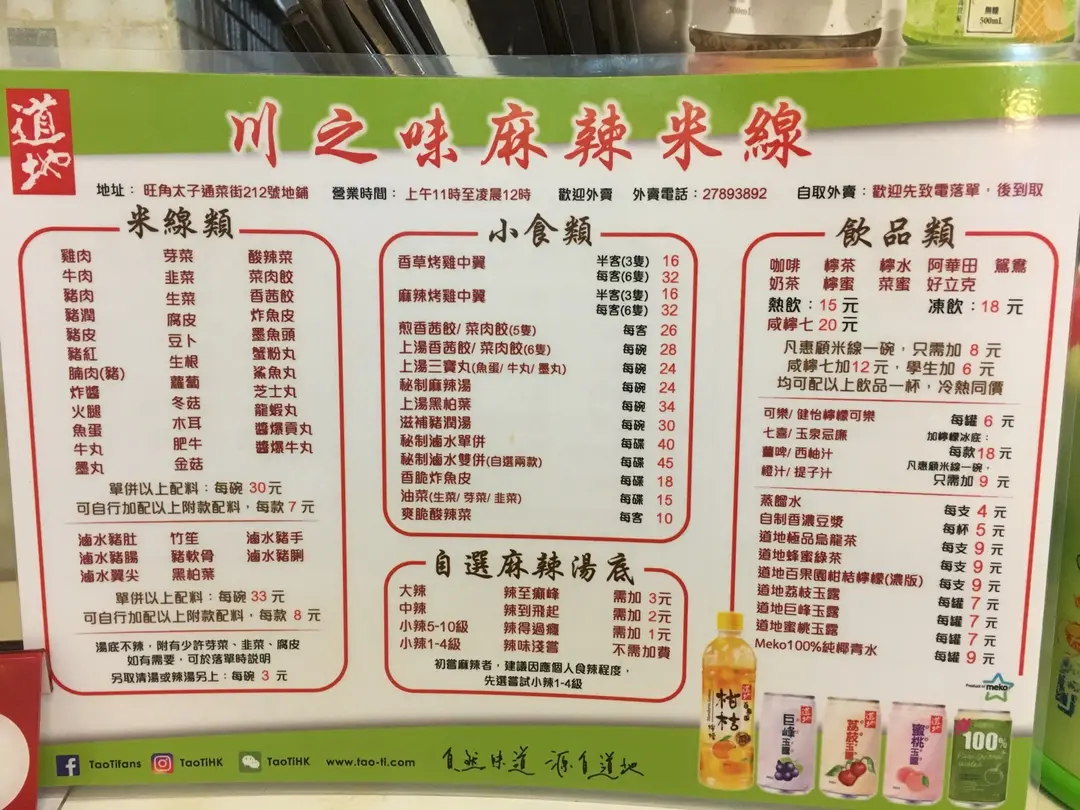 無糖
500mL
500mL
道地
川之味麻辣米線
地址：旺角太子通菜街212號地鋪 營業時間：上午11時至凌晨12時 歡迎外賣 外賣電話：27893892 自取外賣：歡迎先致電落單，後到取
米線類
雞肉 芽菜 酸辣菜
牛肉 韭菜 菜肉餃
豬肉 生菜 香茜餃
豬潤 腐皮 炸魚皮
豬皮 豆卜 墨魚頭
豬紅 生根 蟹粉丸
腩肉(豬) 蘿蔔 鯊魚丸
炸醬 冬菇 芝士丸
火腿 木耳 龍蝦丸
魚蛋 肥牛 醬爆貢丸
牛丸 金菇 醬爆牛丸
墨丸
單併以上配料：每碗 30元
可自行加配以上附款配料，每款 7 元
滷水豬肚 竹笙 滷水豬手
滷水豬腸 豬軟骨 滷水豬脷
滷水翼尖 黑柏葉
單併以上配料：每碗 33元
可自行加配以上附款配料，每款 8 元
湯底不辣，附有少許芽菜、韭菜、腐皮
如有需要，可於落單時説明
另取清湯或辣湯另上：每碗 3 元
小食類
香草烤雞中翼 半客(3隻) 16
每客(6隻) 32
麻辣烤雞中翼 半客(3隻) 16
每客(6隻) 32
煎香茜餃/ 菜肉餃(5隻) 每客 26
上湯香茜餃/ 菜肉餃(6隻) 每碗 28
上湯三寶丸(魚蛋/ 牛丸/ 墨丸) 每碗 24
祕制麻辣湯 每碗 24
上湯黑柏葉 每碗 34
滋補豬潤湯 每碗 30
祕制滷水單併 每碟 40
祕制滷水雙併(自選兩款) 每碟 45
香脆炸魚皮 每碟 18
油菜(生菜/ 芽菜/ 韭菜) 每碟 15
爽脆酸辣菜 每客 10
自選麻辣湯底
大辣 辣至癲峰 需加 3元
中辣 辣到飛起 需加 2元
小辣5-10級 辣得過癮 需加 1元
小辣1-4級 辣味淺嘗 不需加費
初嘗麻辣者，建議因應個人食辣程度，
先選嘗試小辣1-4級
飲品類
咖啡 檸茶 檸水 阿華田 鴛鴦
奶茶 檸蜜 菜蜜 好立克
熱飲：15 元 凍飲：18 元
咸檸七 20 元
凡惠顧米線一碗，只需加 8 元
咸檸七加12元，學生加 6 元
均可配以上飲品一杯，冷熱同價
可樂/ 健怡檸檬可樂 每罐 6 元
七喜/ 玉泉忌廉 加檸檬冰底：
薑啤/ 西柚汁 每款18 元
橙汁/ 提子汁 凡惠顧米線一碗，
只需加 9 元
蒸餾水 每支 4 元
自制香濃豆漿 每杯 5 元
道地極品烏龍茶 每支 9 元
道地蜂蜜綠茶 每支 9 元
道地百果園柑桔檸檬(濃版) 每支 9 元
道地荔枝玉露 每罐 7 元
道地巨峰玉露 每罐 7 元
道地蜜桃玉露 每罐 7 元
Meko100%純椰青水 每罐 9 元
Product of meko
巨峰玉露
荔枝玉露
蜜桃玉露
100%
TaoTifans TaoTiHK TaoTiHK www.tao-ti.com 自然味道 源自道地